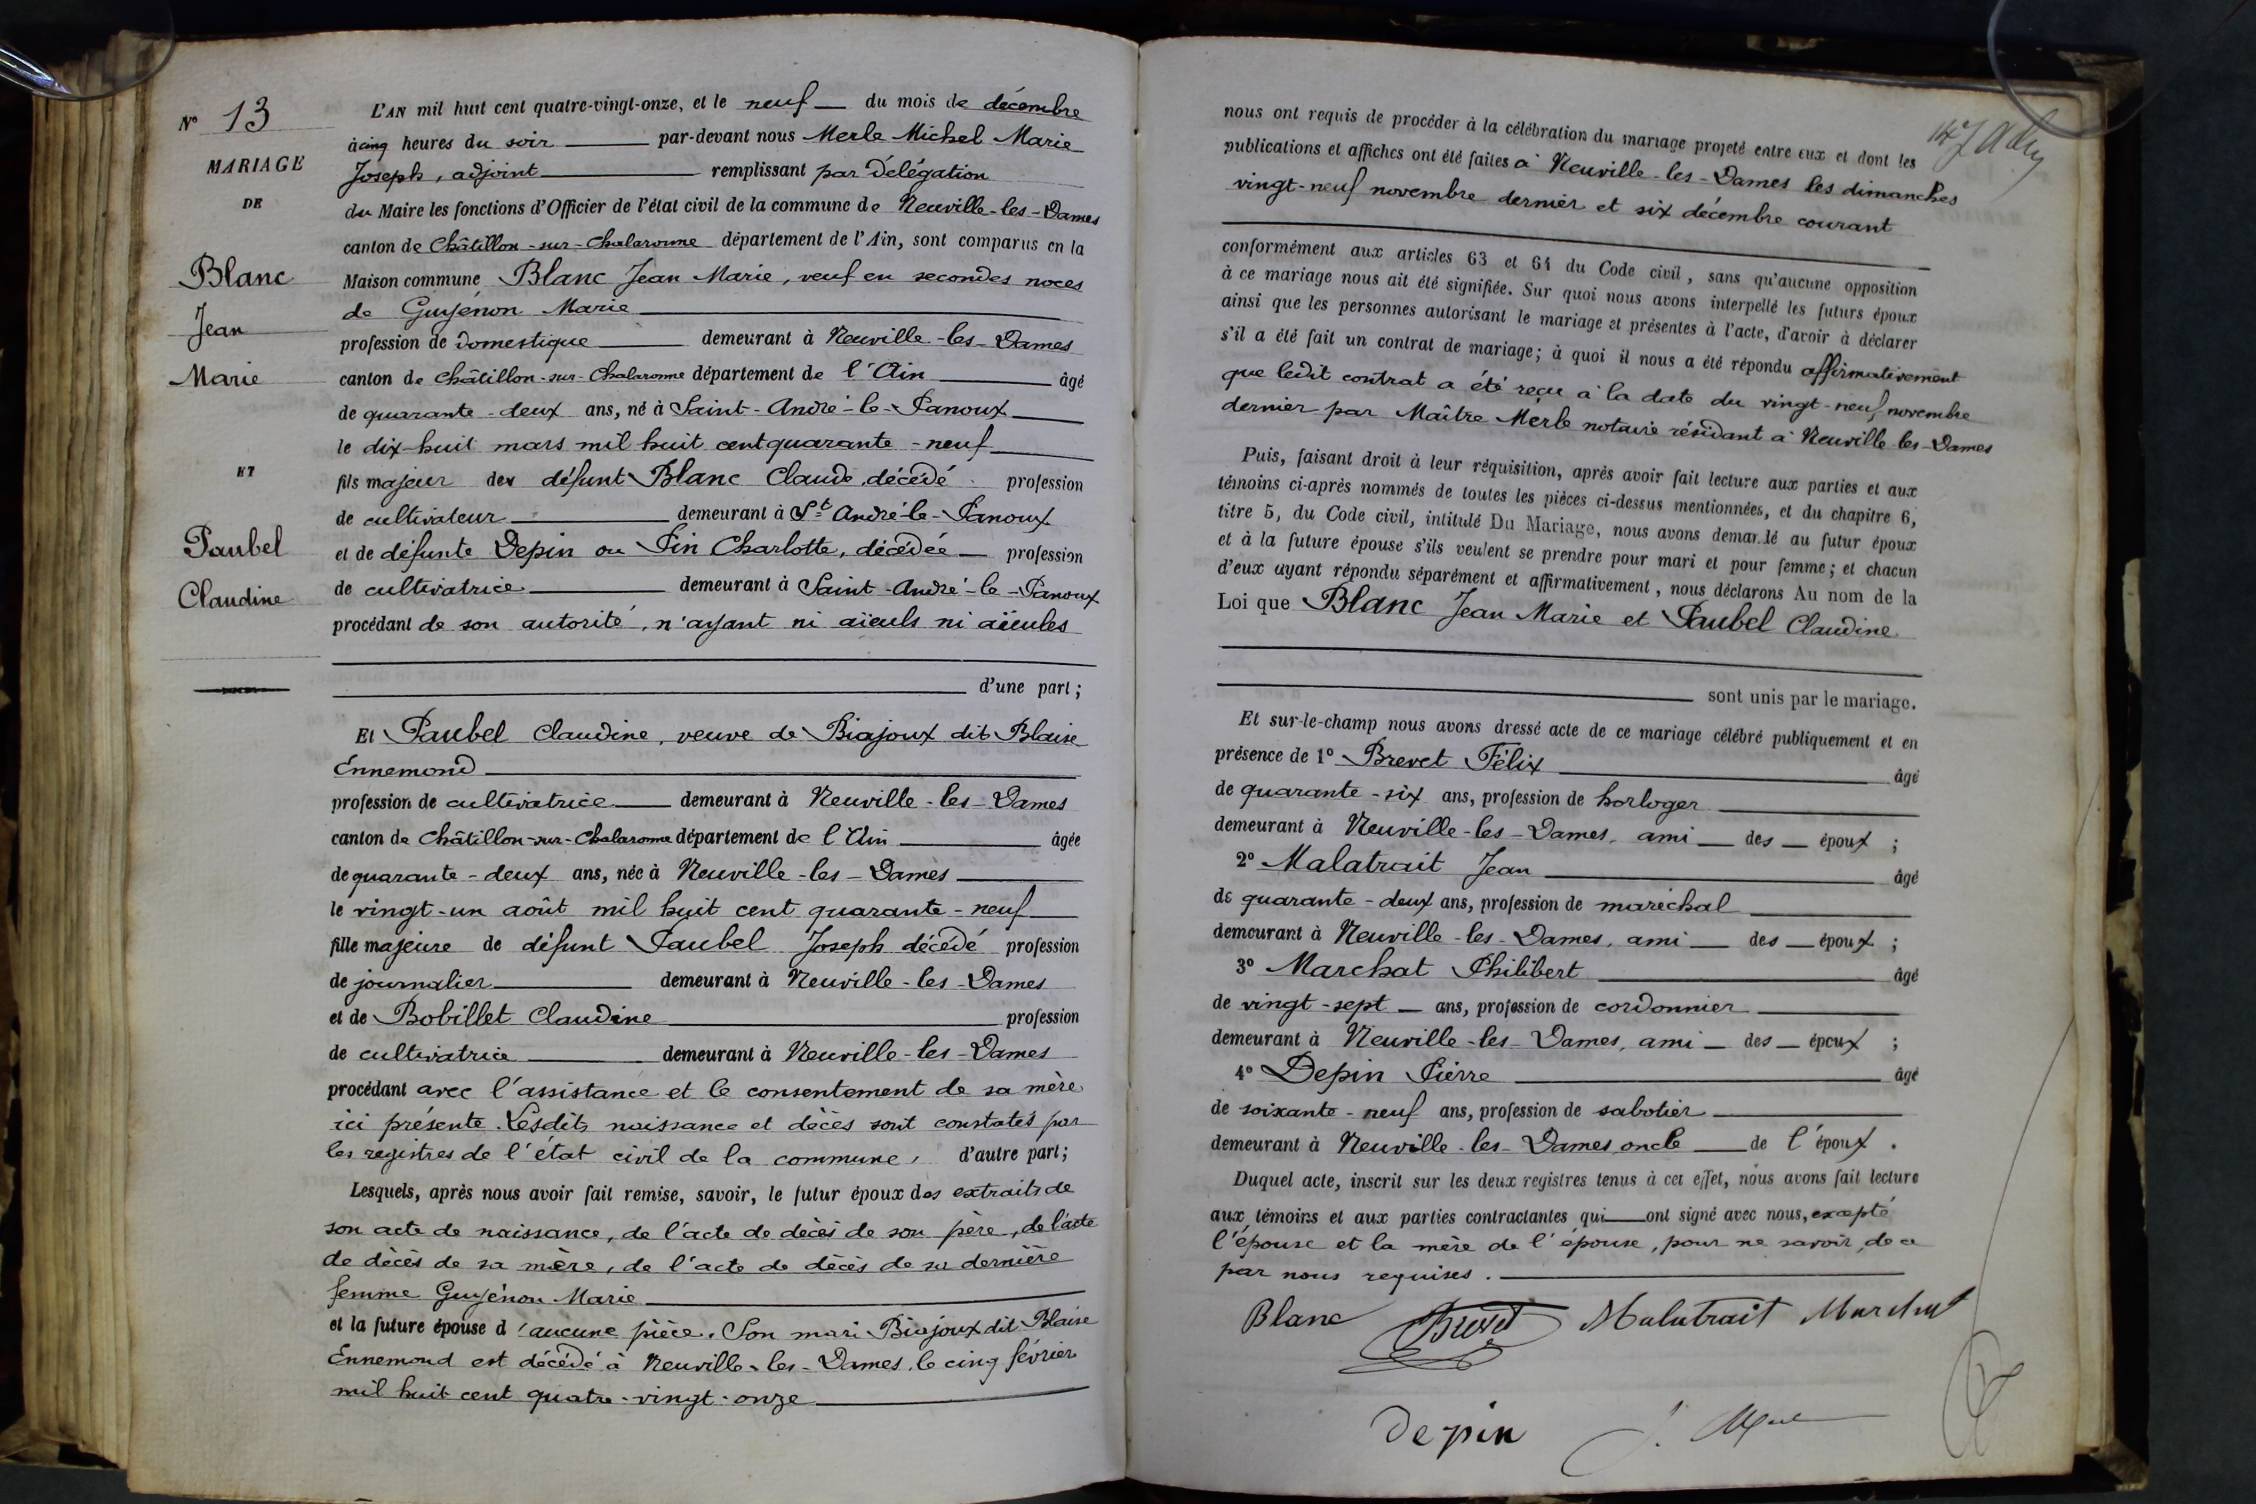 N° 13
MARIAGE
DE
Blanc
Jean
Marie
ET
Paubel
Claudine
L'AN mil huit cent quatre-vingt-onze, et le neuf du mois de décembre
à cinq heures du soir par-devant nous Merle Michel Marie
Joseph, adjoint remplissant par délégation
du Maire les fonctions d'Officier de l'état civil de la commune de Neuville-les-Dames
canton de Châtillon-sur-Chalaronne département de l'Ain, sont comparus en la
Maison commune Blanc Jean Marie, veuf en secondes noces
de Guyénon Marie
profession de domestique demeurant à Neuville-les-Dames
canton de Châtillon-sur-Chalaronne département de l'Ain âgé
de quarante-deux ans, né à Saint-André-le-Panoux
le dix-huit mars mil huit cent quarante-neuf
fils majeur de défunt Blanc Claude, décédé profession
de cultivateur demeurant à St André-le-Panoux
et de défunte Depin ou Pin Charlotte, décédée profession
de cultivatrice demeurant à Saint-André-le-Panoux
procédant de son autorité, n'ayant ni aïeuls ni aïeules
d'une part;
Et Paubel Claudine, veuve de Biajoux dit Blaise
Ennemond
profession de cultivatrice demeurant à Neuville-les-Dames
canton de Châtillon-sur-Chalaronne département de l'Ain âgée
de quarante-deux ans, née à Neuville-les-Dames
le vingt-un août mil huit cent quarante-neuf
fille majeure de défunt Paubel Joseph décédé profession
de journalier demeurant à Neuville-les-Dames
et de Bobillet Claudine profession
de cultivatrice demeurant à Neuville-les-Dames
procédant avec l'assistance et le consentement de sa mère
ici présente. Lesdits naissance et décès sont constatés par
les registres de l'état civil de la commune, d'autre part;
Lesquels, après nous avoir fait remise, savoir, le futur époux des extraits de
son acte de naissance, de l'acte de décès de son père, de l'acte
de décès de sa mère, de l'acte de décès de sa dernière
femme Guyénon Marie
et la future épouse d'aucune pièce. Son mari Biajoux dit Blaise
Ennemond est décédé à Neuville-les-Dames, le cinq février
mil huit cent quatre-vingt-onze
nous ont requis de procéder à la célébration du mariage projeté entre eux et dont les
publications et affiches ont été faites à Neuville-les-Dames les dimanches
vingt-neuf novembre dernier et six décembre courant
conformément aux articles 63 et 64 du Code civil, sans qu'aucune opposition
à ce mariage nous ait été signifiée. Sur quoi nous avons interpellé les futurs époux
ainsi que les personnes autorisant le mariage et présentes à l'acte, d'avoir à déclarer
s'il a été fait un contrat de mariage; à quoi il nous a été répondu affirmativement
que ledit contrat a été reçu à la date du vingt-neuf novembre
dernier par Maître Merle notaire résidant à Neuville-les-Dames
Puis, faisant droit à leur réquisition, après avoir fait lecture aux parties et aux
témoins ci-après nommés de toutes les pièces ci-dessus mentionnées, et du chapitre 6,
titre 5, du Code civil, intitulé Du Mariage, nous avons demandé au futur époux
et à la future épouse s'ils veulent se prendre pour mari et pour femme; et chacun
d'eux ayant répondu séparément et affirmativement, nous déclarons Au nom de la
Loi que Blanc Jean Marie et Paubel Claudine
sont unis par le mariage.
Et sur-le-champ nous avons dressé acte de ce mariage célébré publiquement et en
présence de 1° Brevet Félix âgé
de quarante-six ans, profession de horloger
demeurant à Neuville-les-Dames, ami des époux;
2° Malatrait Jean âgé
de quarante-deux ans, profession de maréchal
demeurant à Neuville-les-Dames, ami des époux;
3° Marchat Philibert âgé
de vingt-sept ans, profession de cordonnier
demeurant à Neuville-les-Dames, ami des époux;
4° Depin Pierre âgé
de soixante-neuf ans, profession de sabotier
demeurant à Neuville-les-Dames, oncle de l'époux.
Duquel acte, inscrit sur les deux registres tenus à cet effet, nous avons fait lecture
aux témoins et aux parties contractantes qui ont signé avec nous, excepté
l'épouse et la mère de l'épouse, pour ne savoir, de ce
par nous requises.
Blanc Brevet Malatrait Marchat
Depin